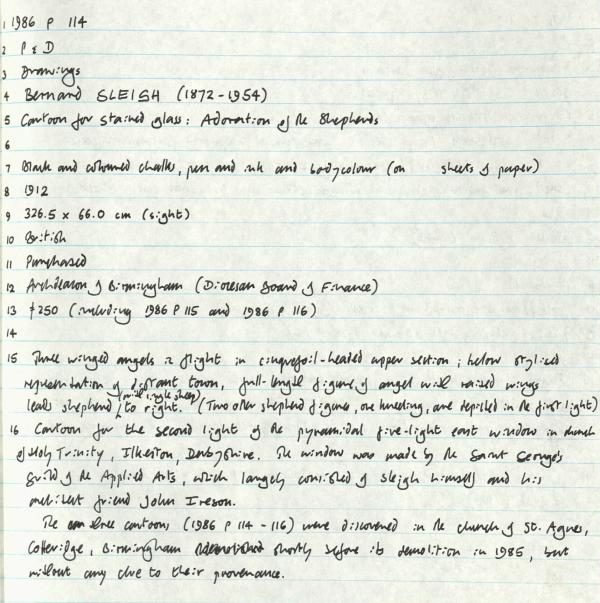 1 1986 P 114
2 P & D
3 Drawings
4 Bernard SLEIGH (1872-1954)
5 Cartoon for stained glass: Adoration of the Shepherds
6
7 Black and coloured chalks, pen and ink and bodycolour (on sheets of paper)
8 1912
9 326.5 x 66.0 cm (sight)
10 British
11 Purchased
12 Archdeacon of Birmingham (Diocesan Board of Finance)
13 £250 (including 1986 P 115 and 1986 P 116)
14
15 Three winged angels in flight in cinquefoil-headed upper section; below stylised
representation of distant town, full-length figure of angel with raised wings
leads shepherd (with single sheep) to right. (Two other shepherd figures, one kneeling, are depicted in the first light)
16 Cartoon for the second light of the pyramidal five-light east window in church
of Holy Trinity, Ilkeston, Derbyshire. The window was made by the Saint George's
Guild of the Applied Arts, which largely consisted of Sleigh himself and his
architect friend John Ireson.
The three cartoons (1986 P 114 - 116) were discovered in the church of St. Agnes,
Cotteridge, Birmingham shortly before its demolition in 1985, but
without any clue to their provenance.